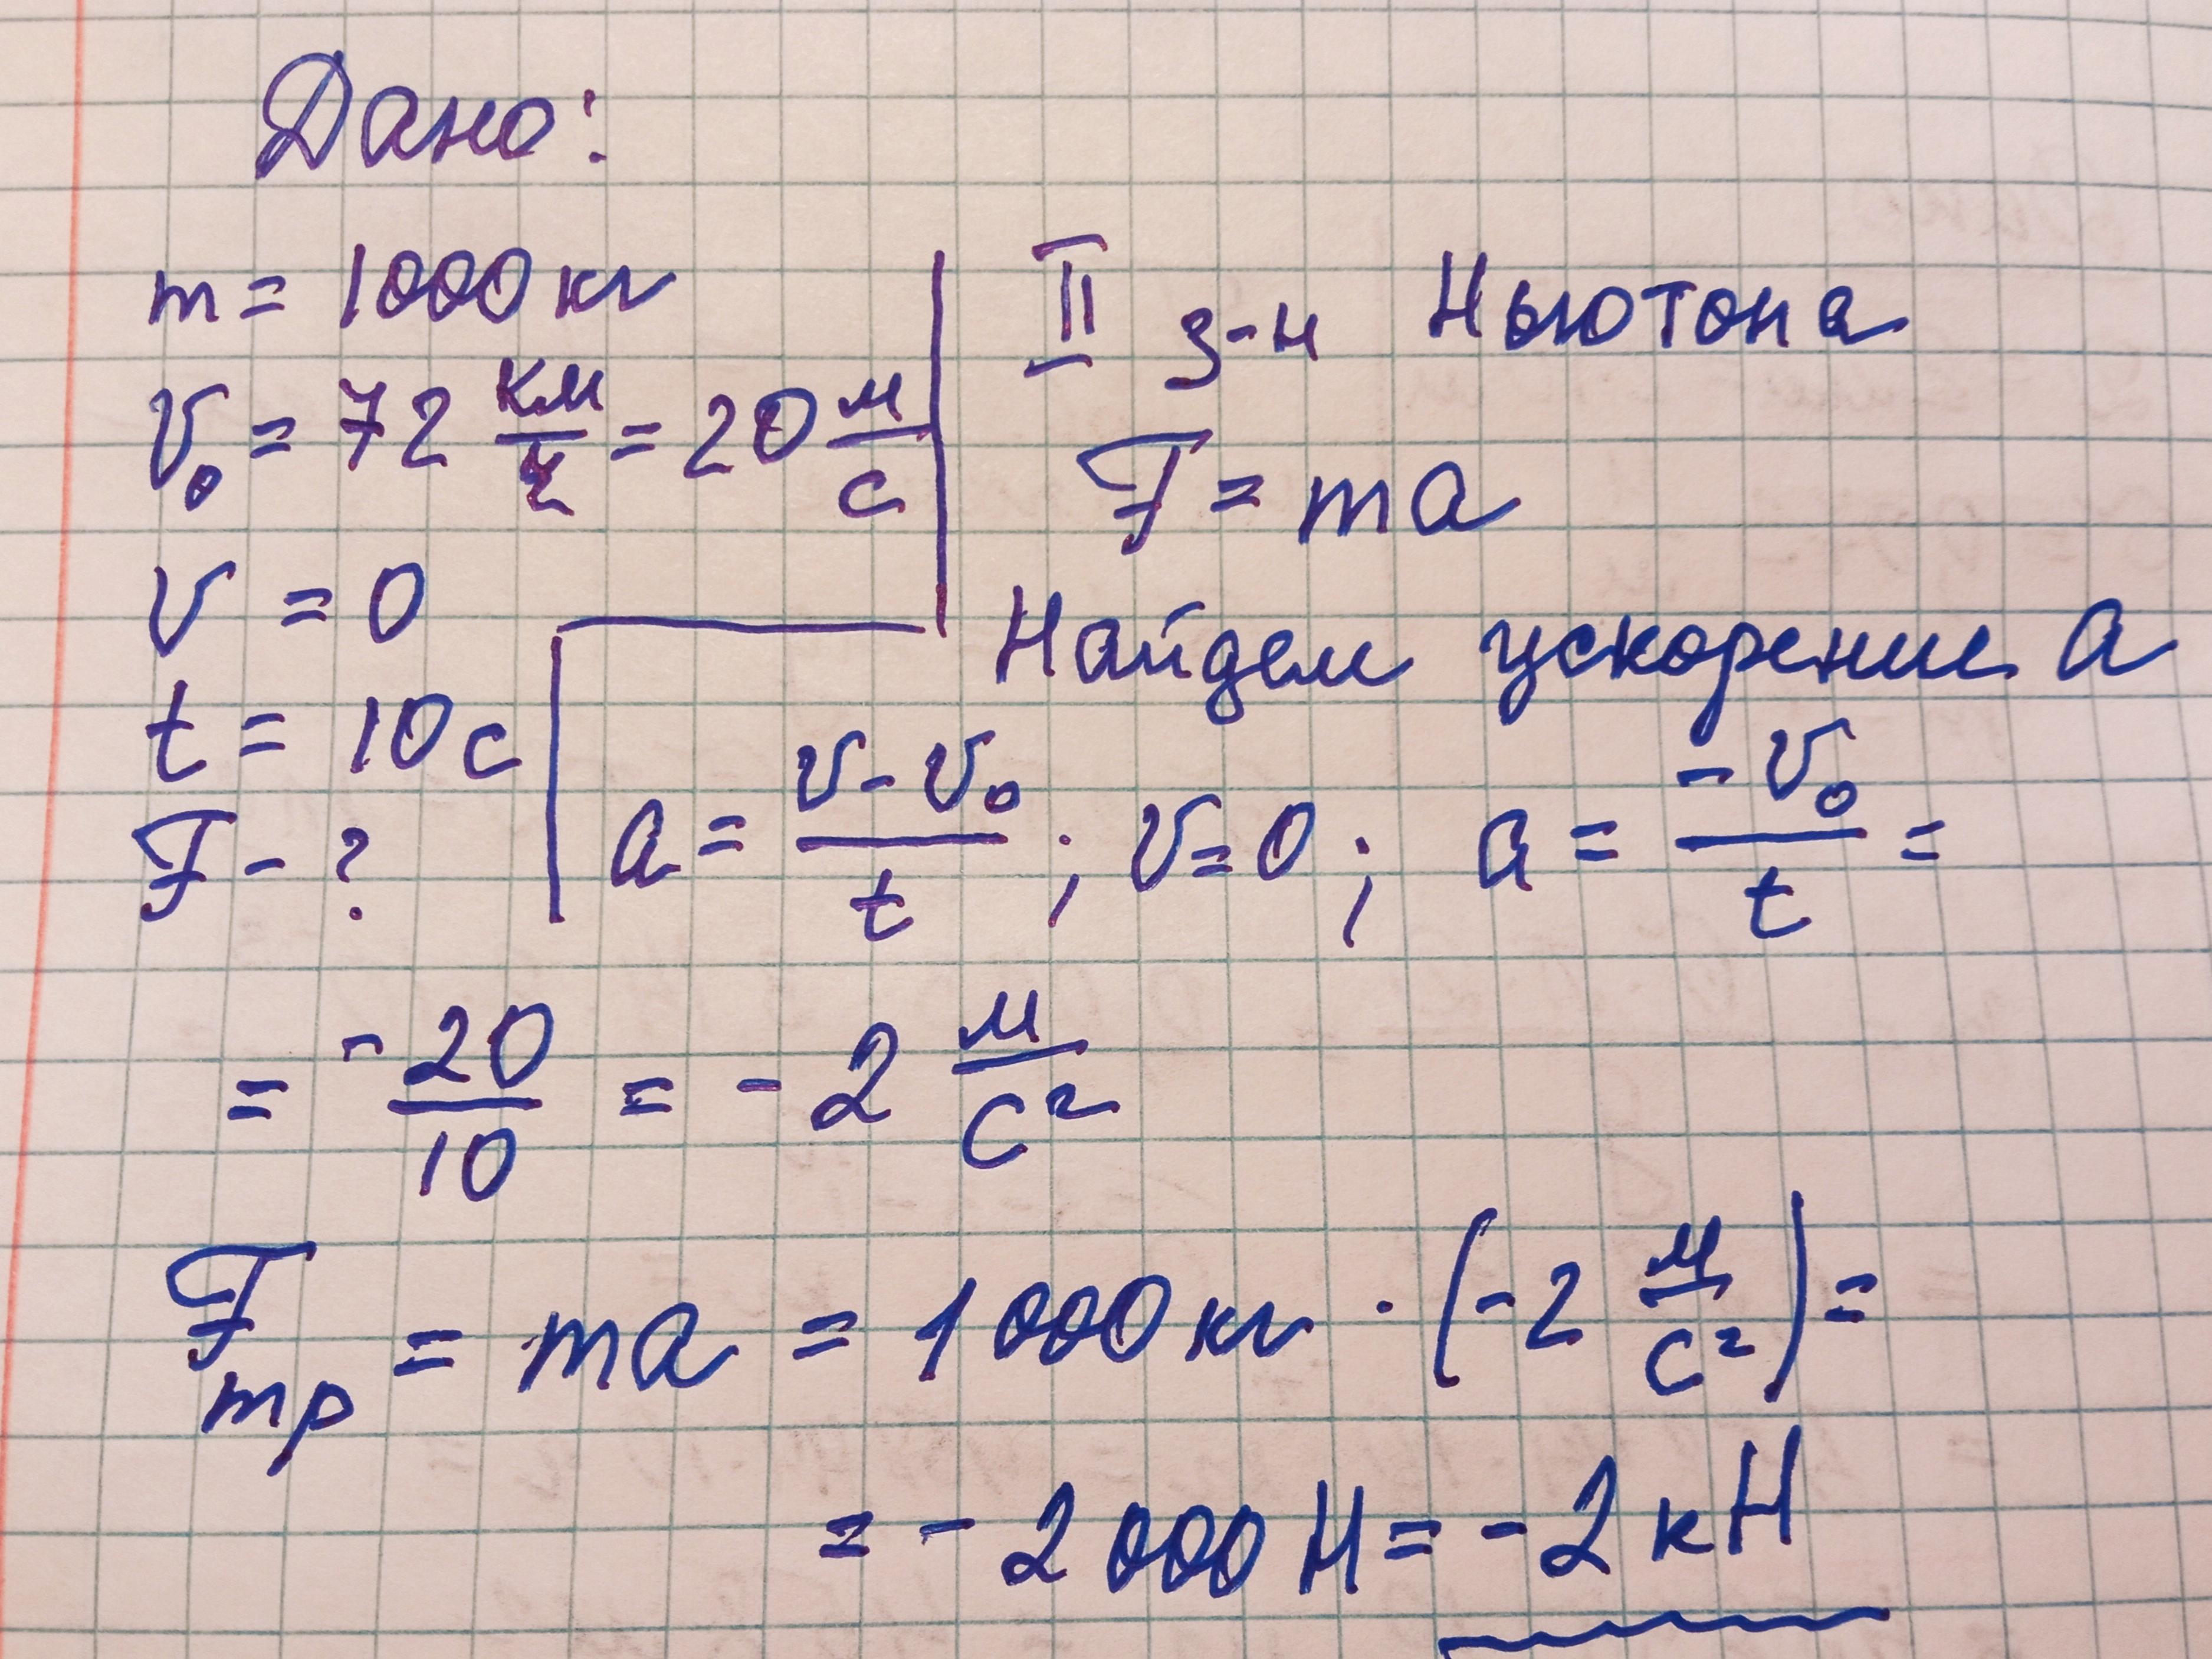 Дано:
m = 1000 кг
v₀ = 72 км/ч = 20 м/с
v = 0
t = 10 с
F - ?
II з-н Ньютона
F = ma
Найдем ускорение a
a = (v - v₀)/t ; v = 0 ; a = (-v₀)/t =
= -20/10 = -2 м/с²
Fтр = ma = 1000 кг · (-2 м/с²) =
= -2000 Н = -2 кН